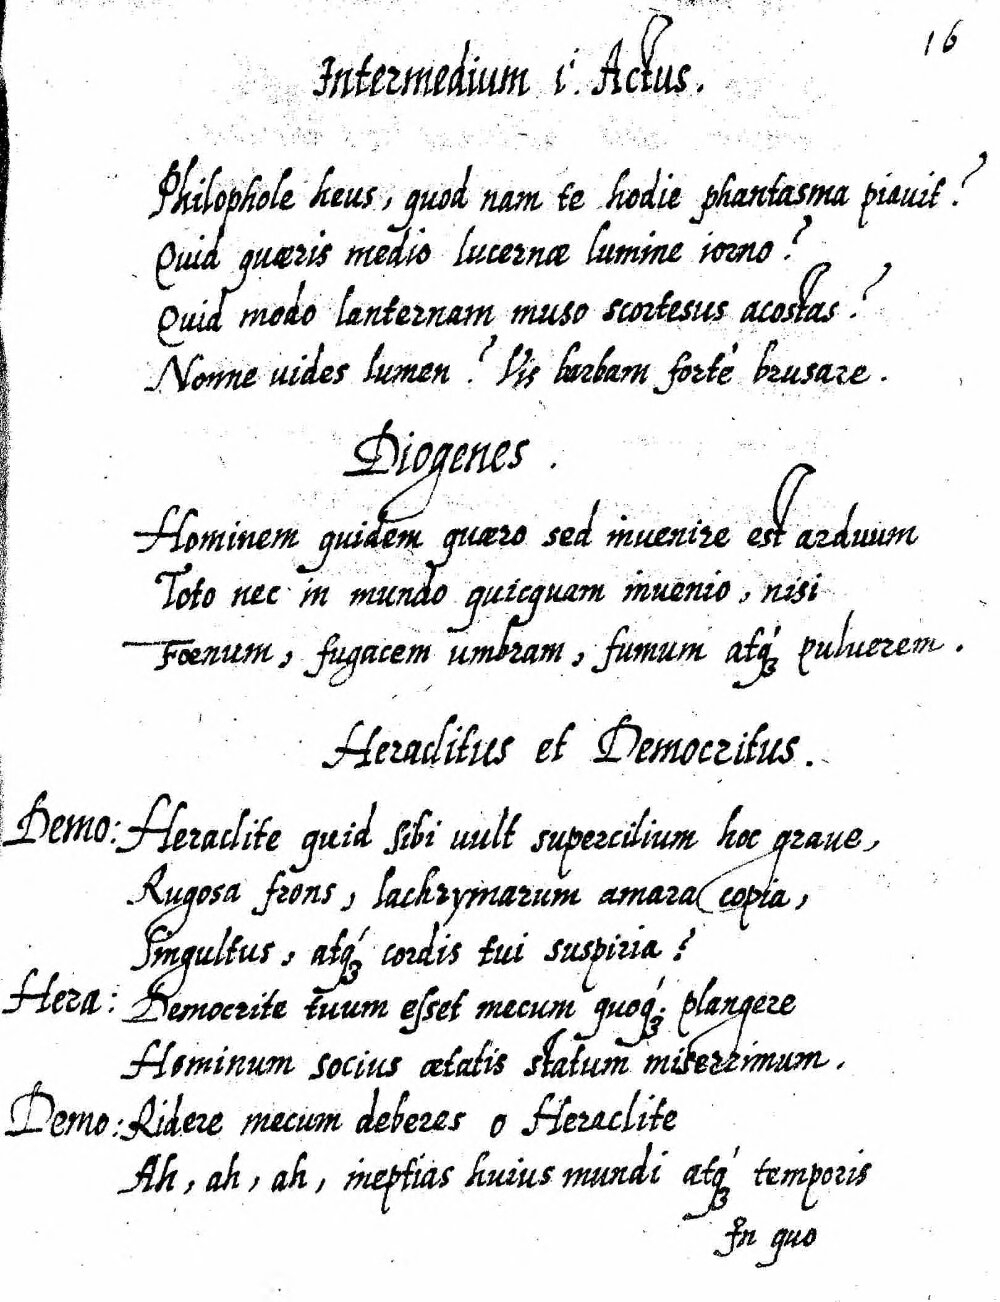 16
Intermedium i. Actus.
Philophole heus, quod nam te hodie phantasma piauit?
Quid quæris medio lucernæ lumine iorno?
Quid modo lanternam muso scortesus acostas?
Nonne uides lumen? Vis barbam fortè brusare.
Diogenes.
Hominem quidem quæro sed inuenire est arduum
Toto nec in mundo quicquam inuenio, nisi
Fœnum, fugacem umbram, fumum atq́ꝫ puluerem.
Heraclitus et Democritus.
Demo: Heraclite quid sibi uult supercilium hoc graue,
Rugosa frons, lachrymarum amara copia,
Singultus, atq́ꝫ cordis tui suspiria?
Hera: Democrite tuum esset mecum quoq́ꝫ plangere
Hominum socius ætatis statum miserrimum.
Demo: Ridere mecum deberes o Heraclite
Ah, ah, ah, ineptias huius mundi atq́ꝫ temporis
In quo